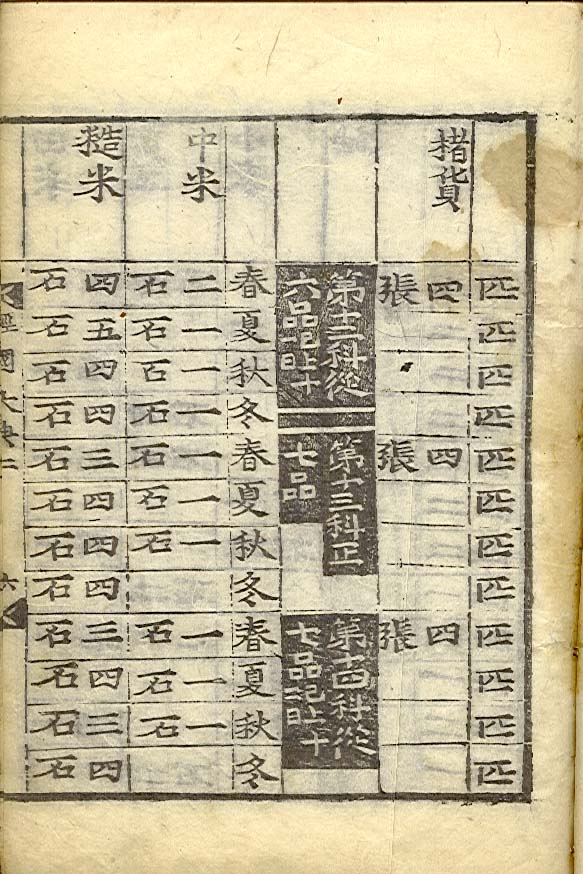 匹 匹 匹 匹 匹 匹 匹 匹 匹 匹 匹 匹
楮貨 四張 四張 四張
第十二科從
六品
第十三科正
七品
第十四科從
七品
春 夏 秋 冬 春 夏 秋 冬 春 夏 秋 冬
中米 二石 一石 一石 一石 一石 一石 一石 一石 一石 一石
糙米 四石 五石 四石 四石 三石 四石 四石 四石 三石 四石 三石 四石
經國大典 六